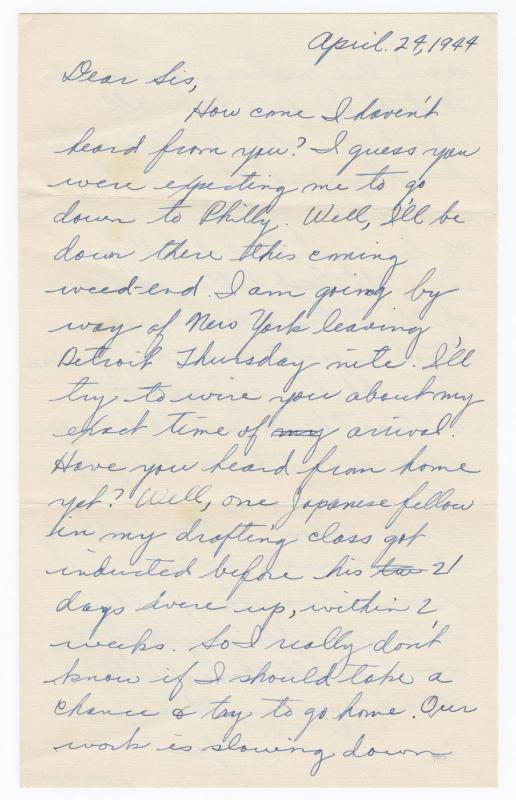 April. 24, 1944
Dear Sis,
How come I haven't
heard from you? I guess you
were expecting me to go
down to Philly. Well, I'll be
down there this coming
weed-end. I am going by
way of New York leaving
Detroit Thursday nite. I'll
try to wire you about my
exact time of my arrival.
Have you heard from home
yet? Well, one Japanese fellow
in my drafting class got
inducted before his two 21
days were up, within 2
weeks. So I really don't
know if I should take a
chance & try to go home. Our
work is slowing down